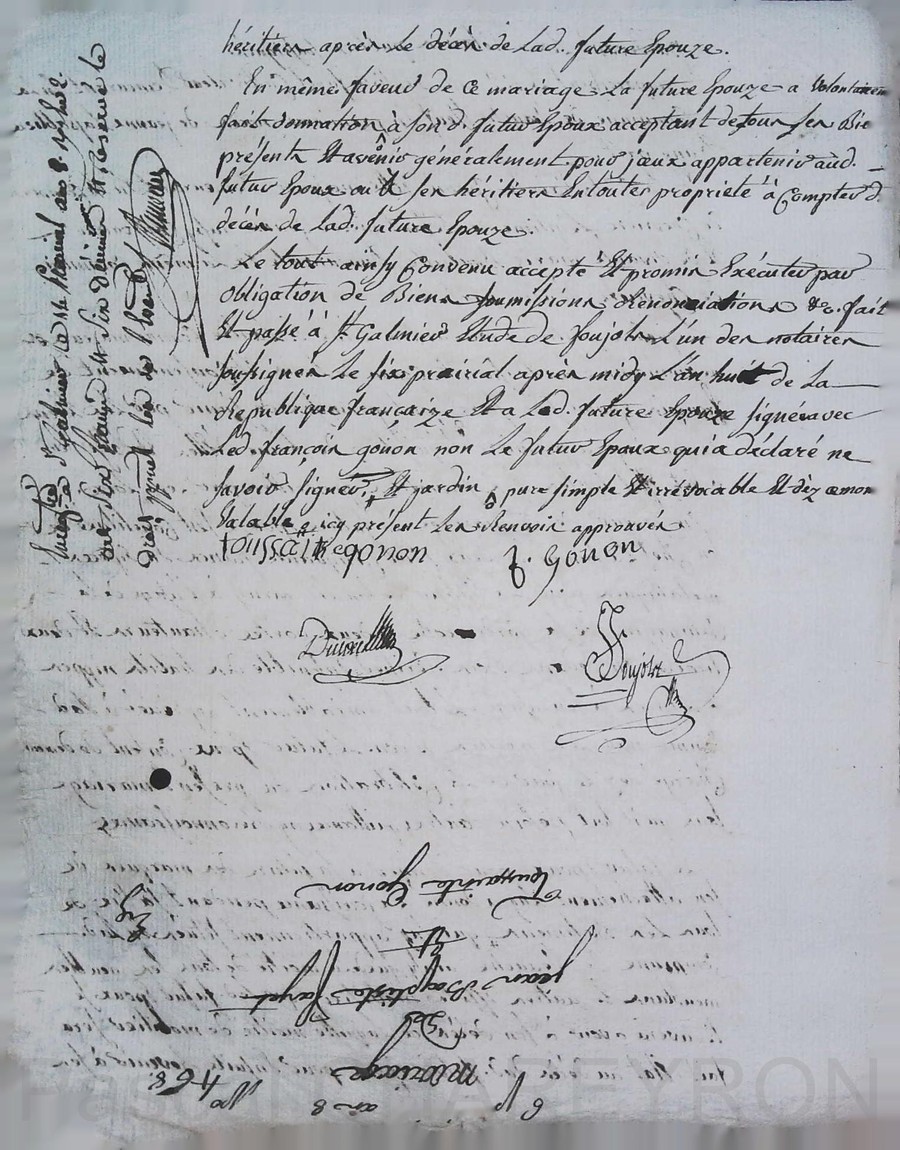 héritiers après le décès de lad. future Epouze.
En même faveur de ce mariage la future Epouze a volontairem
fait donnation à son d. futur Epoux acceptant de tous ses Bie
présents Et avenir généralement pour jceux appartenir aud.
futur Epoux ou à ses héritiers En toutes propriété à Compter d.
décès de lad. future Epouze.
Le tout ainsy Convenu accepté Et promis Exécuter par
obligation de Biens soumissions Rénonciations &c. fait
Et passé à St. Galmier Etude de Soujols L'un des notaires
soussignés le six prairial après midy L'an huit de La
République françaize Et a Lad. future Epouze signé avec
Led. françois gonon non Le futur Epoux qui a déclaré ne
savoir signer, Et jardin, pure simple Et irrévocable
valable, icy présent Les Renvois approuvés
toussainte gonon
f. Gonon
Soujols
Enregistré à St. Galmier le 14 prairial an 8.
Toussainte Gonon
Et
Jean Baptiste Fayet
De
mariage
6 pl an 8 No 468